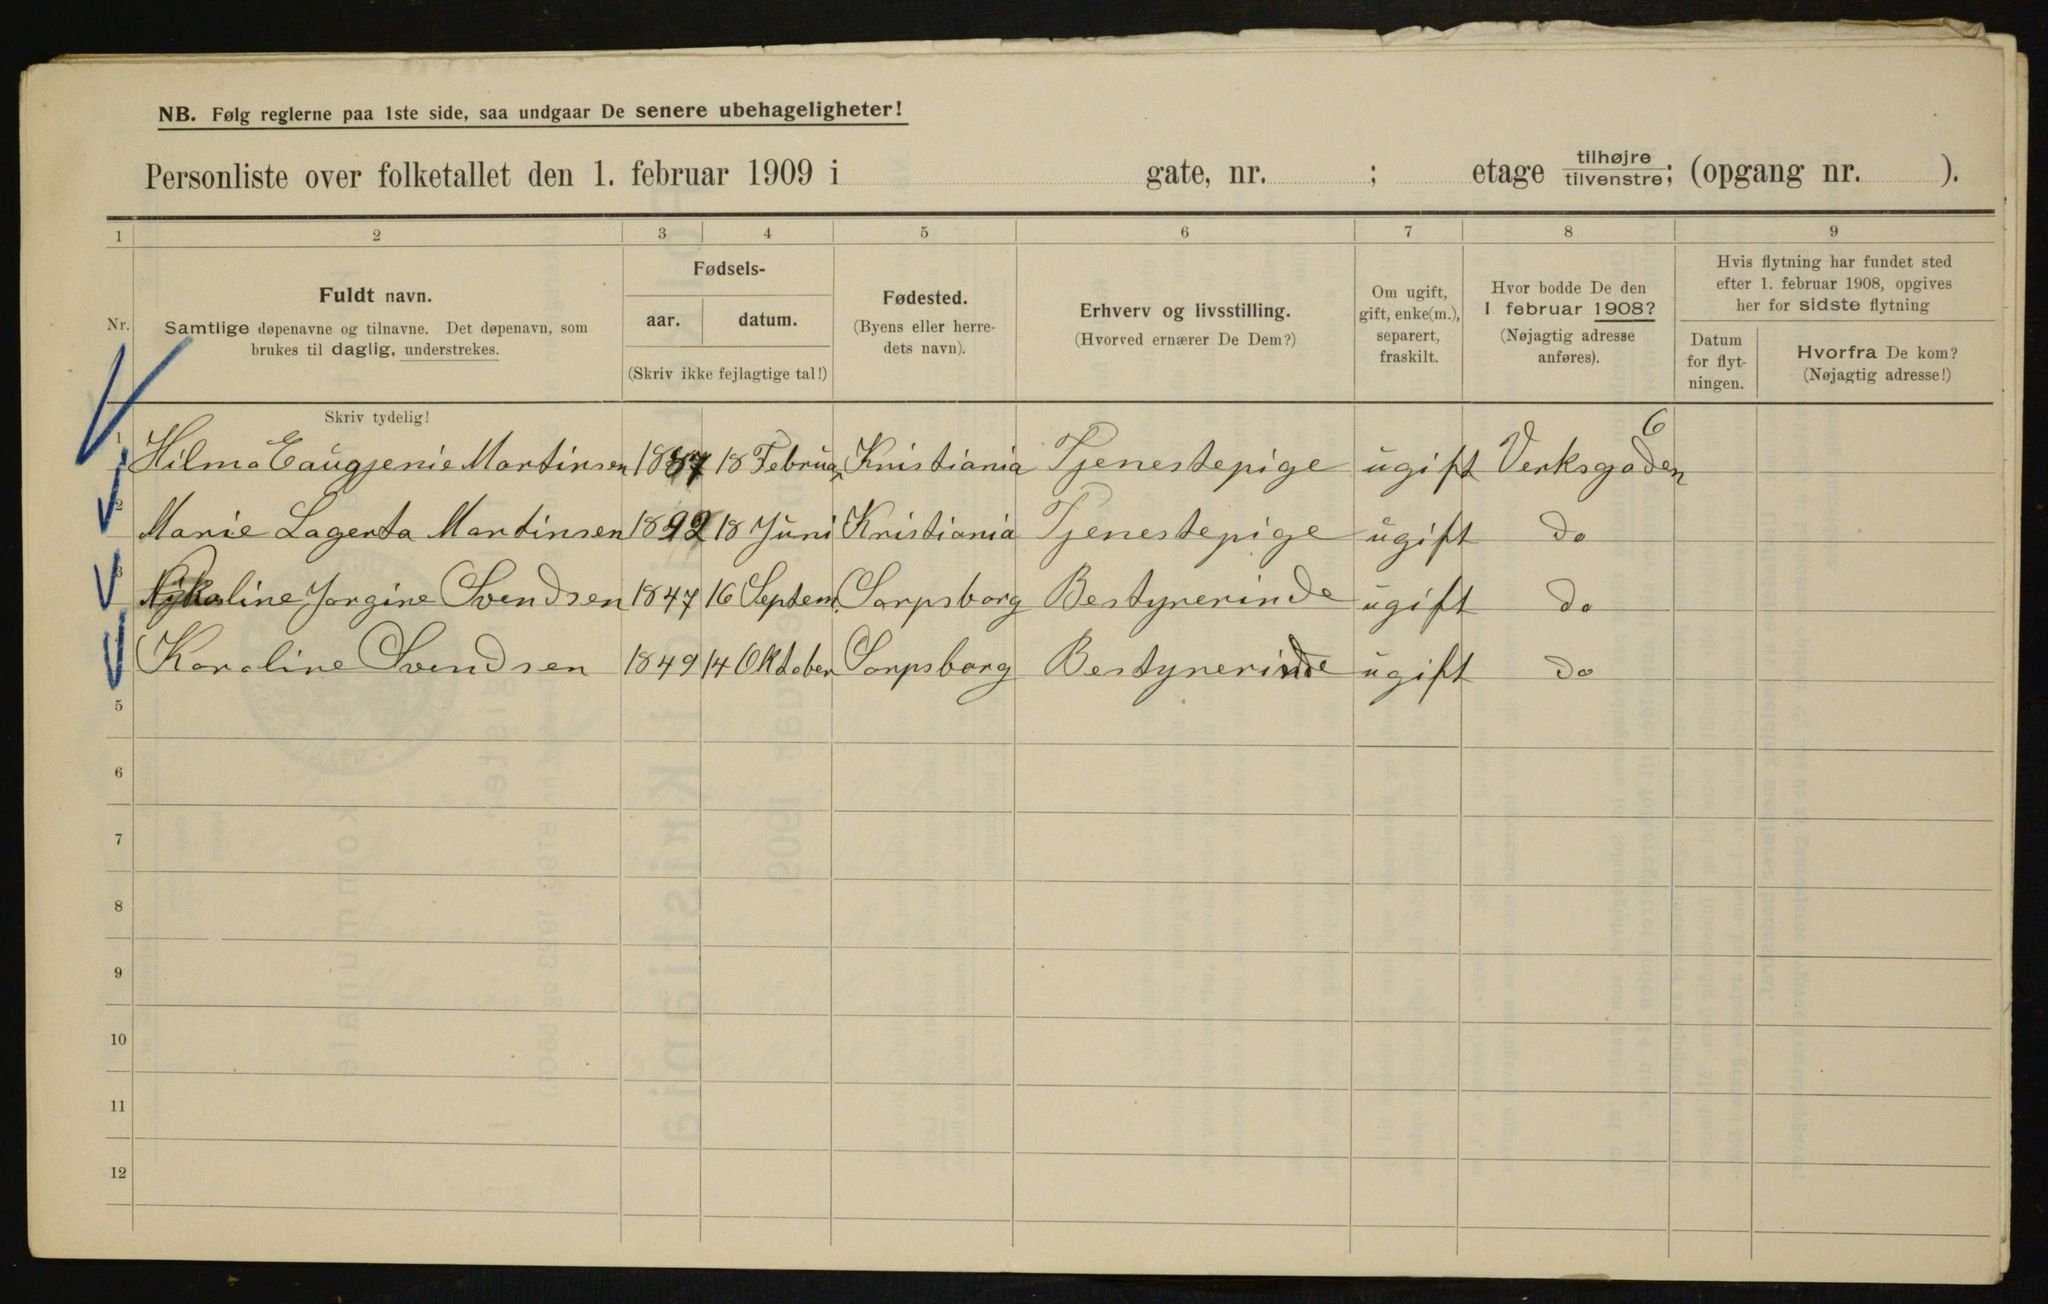 NB. Følg reglerne paa 1ste side, saa undgaar De senere ubehageligheter!
Personliste over folketallet den 1. februar 1909 i gate, nr. ; etage tilhøjre/tilvenstre; (opgang nr. ).
1 2 3 4 5 6 7 8 9
Nr.
Fuldt navn.
Samtlige døpenavne og tilnavne. Det døpenavn, som
brukes til daglig, understrekes.
Skriv tydelig!
Fødsels-
aar. datum.
(Skriv ikke fejlagtige tal!)
Fødested.
(Byens eller herre-
dets navn).
Erhverv og livsstilling.
(Hvorved ernærer De Dem?)
Om ugift,
gift, enke(m.),
separert,
fraskilt.
Hvor bodde De den
1 februar 1908?
(Nøjagtig adresse
anføres).
Hvis flytning har fundet sted
efter 1. februar 1908, opgives
her for sidste flytning
Datum
for flyt-
ningen.
Hvorfra De kom?
(Nøjagtig adresse!)
1 Hilma Eaugjenie Martinsen 1887 18 Februar Kristiania Tjenestepige ugift Verksgaden 6
2 Marie Lagerta Martinsen 1892 18 Juni Kristiania Tjenestepige ugift do
3 Jorgine Svendsen 1847 16 Septem. Sarpsborg Bestyrerinde ugift do
Karoline Svendsen 1849 14 Oktober Sarpsborg Bestyrerinde ugift do
5
6
7
8
9
10
11
12